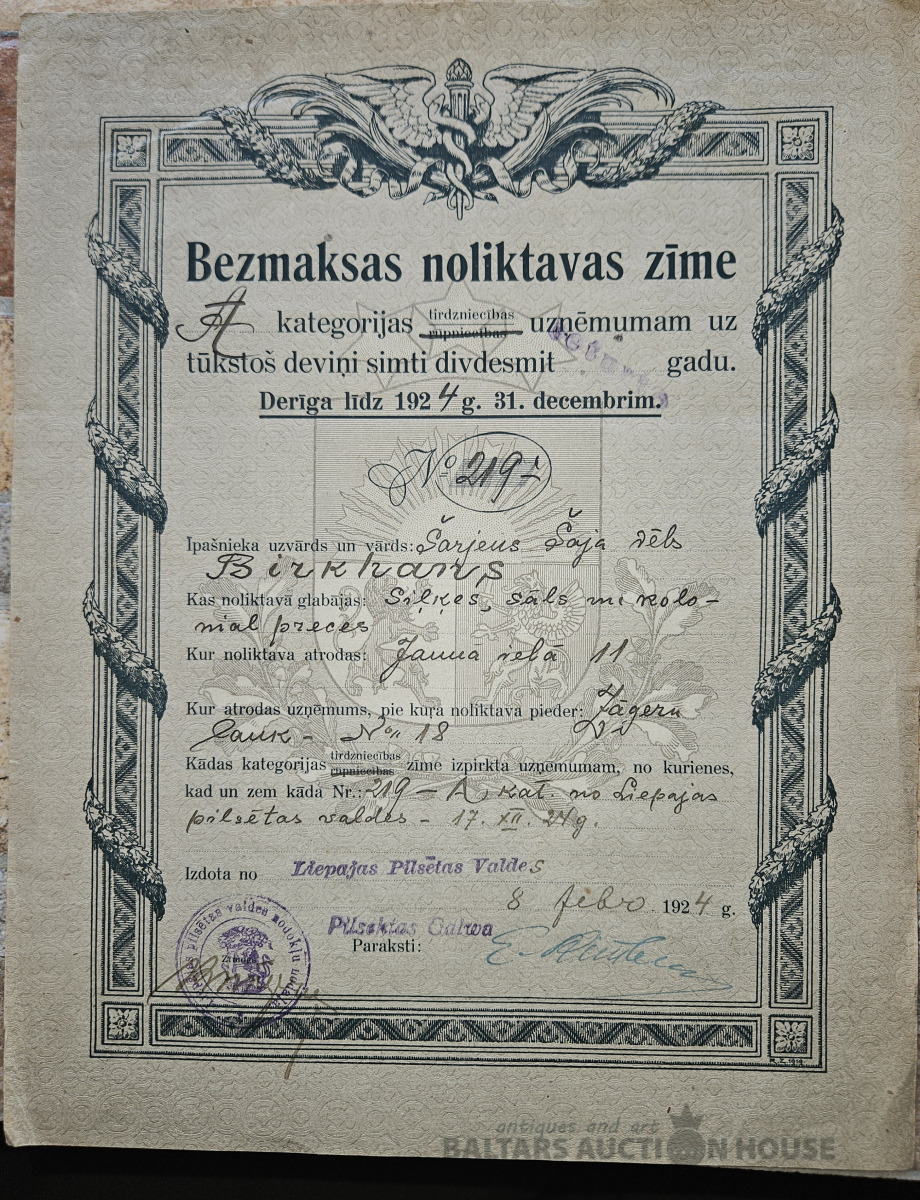 Bezmaksas noliktavas zīme
A kategorijas tirdzniecības rūpniecības uzņēmumam uz
tūkstoš deviņi simti divdesmit gadu.
Derīga līdz 1924 g. 31. decembrim.
No 219
Īpašnieka uzvārds un vārds: Šaja dēls
Birkhans
Kas noliktavā glabājas: Siļķes, sāls un kolo-
nial preces
Kur noliktava atrodas: Jauna ielā 11
Kur atrodas uzņēmums, pie kuŗa noliktava pieder: Jāgeru
lauk - No 18
Kādas kategorijas tirdzniecības rūpniecības zīme izpirkta uzņēmumam, no kurienes,
kad un zem kāda Nr.: 219 - A kat no Liepajas
pilsētas valdes - 17. XII. g.
Izdota no Liepajas Pilsētas Valdes
8 febr. 1924 g.
Pilsehtas Galwa
Paraksti:
pilsētas valdes nodokļu nodaļa
R. Z. 1919
antiques and art
BALTARS AUCTION HOUSE